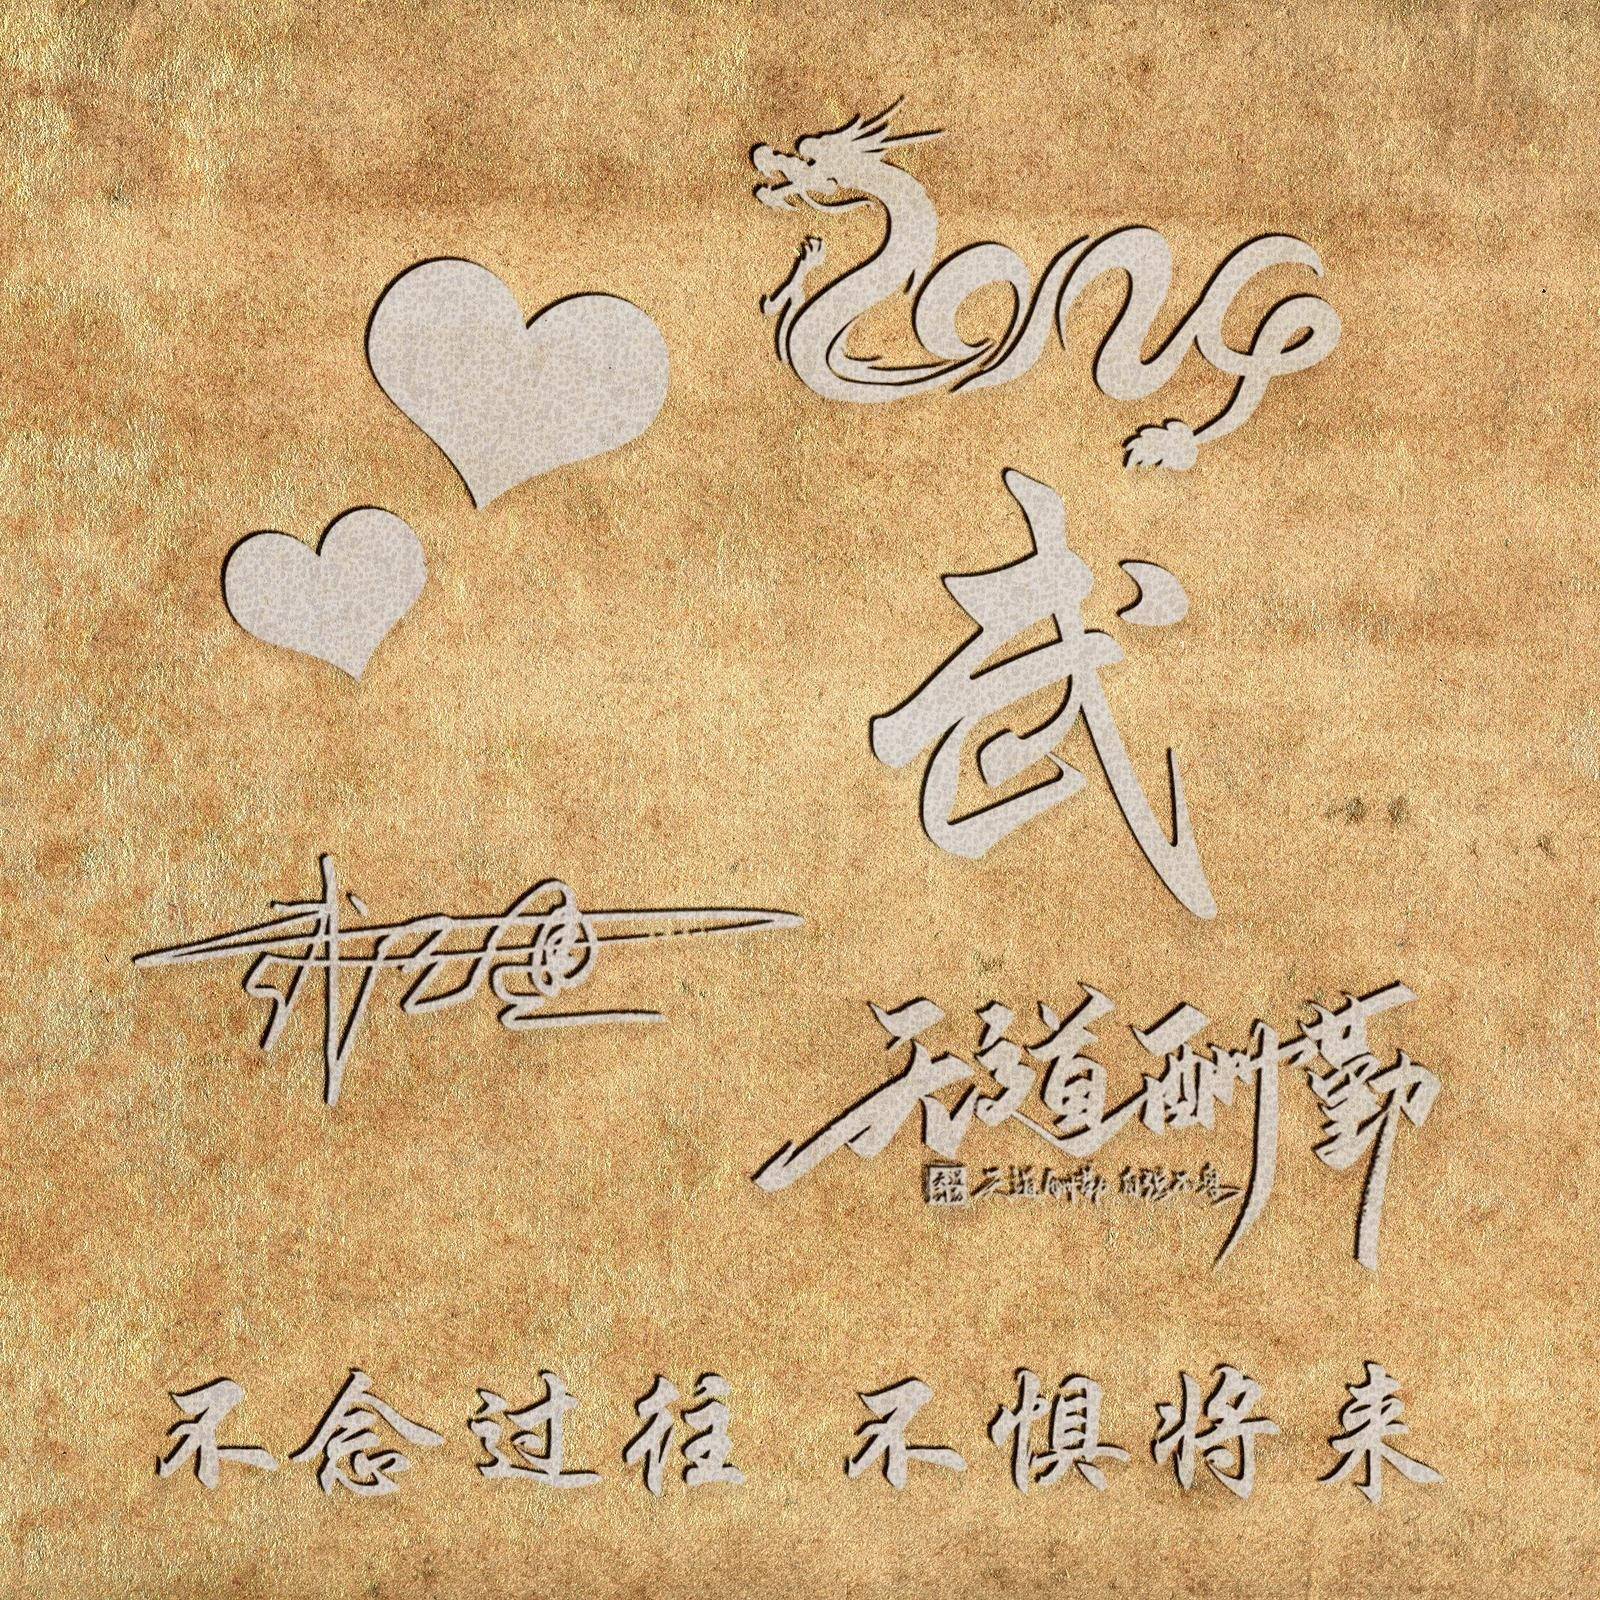 Long
武
天道酬勤
天道酬勤 自强不息
不念过往 不惧将来